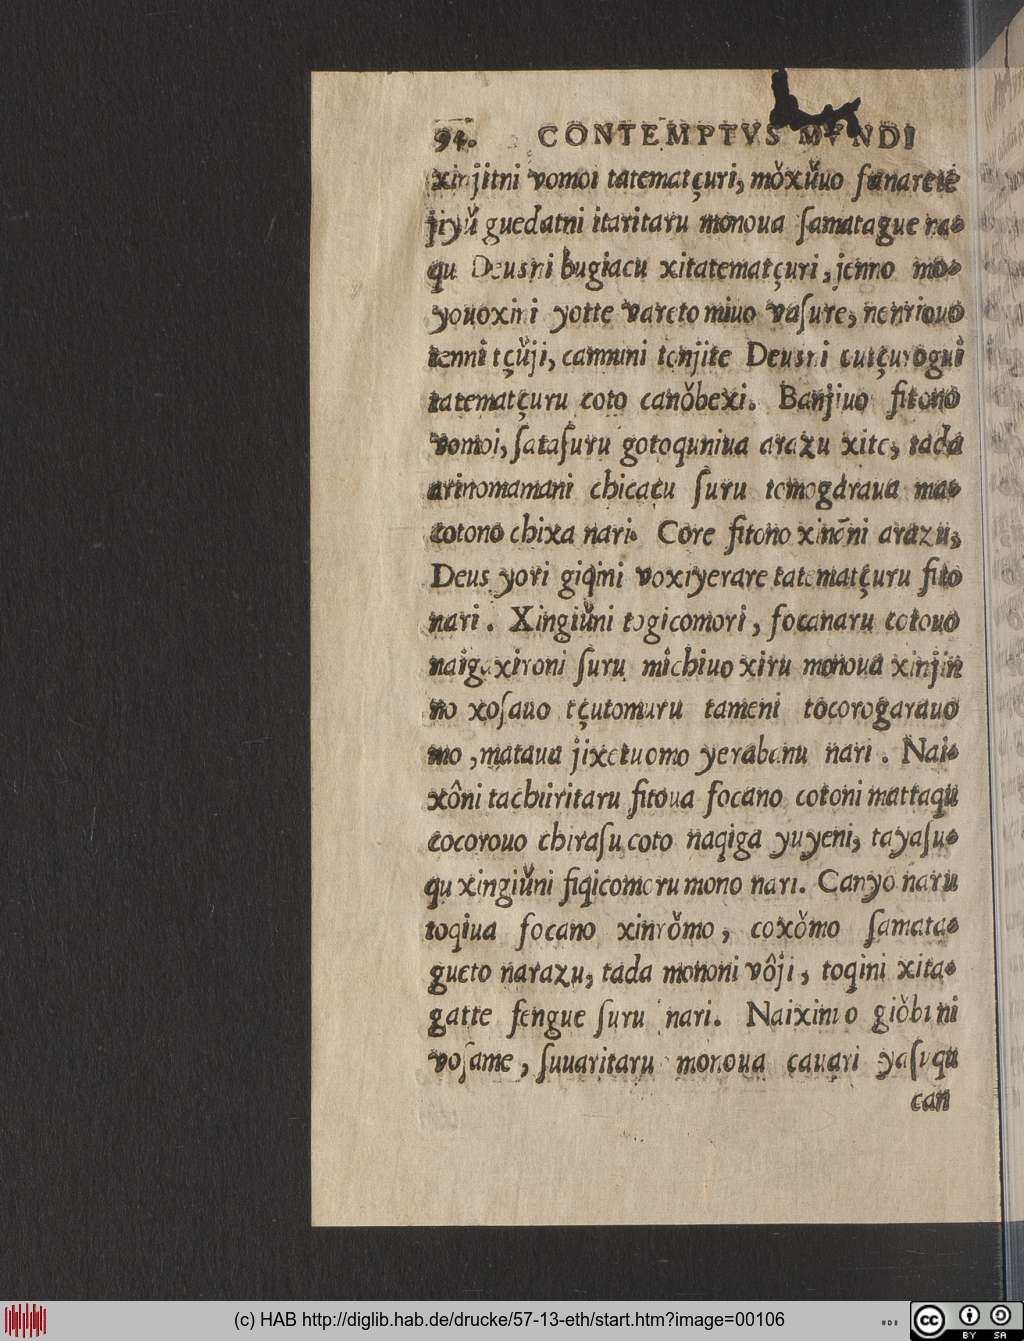 94. CONTEMPTVS MVNDI
xinjitni vomoi tatematçuri, mǒxǔuo fanarete
jiyǔ guedatni itaritaru monoua ſamatague na-
qu Deusni bugiacu xitatematçuri, jenno mo-
youoxini yotte vareto miuo vaſure, nenriouo
tenni tçǔji, canmini tenjite Deusni cutçurogui
tatematçuru coto canǒbexi. Banjiuo fitono
vomoi, ſataſuru gotoquniua arazu xite, tada
arinomamani chicacu ſuru tomogaraua ma-
cotono chixa nari. Core fitono xinãni arazu,
Deus yori giqini voxiyerare tatematçuru fito
nari. Xingiǔni togicomori, focanaru cotouo
naigaxironi ſuru michiuo xiru monoua xinjin
no xoſauo tçutomuru tameni tocorogarauo
mo, mataua jixetuomo yerabanu nari. Nai-
xôni tachiiritaru fitoua focano cotoni mattaqu
cocorouo chiraſu coto naqiga yuyeni, tayaſu-
qu xingiǔni fiqicomoru mono nari. Canyo naru
toqiua focano xinrǒmo, coxǒmo ſamata-
gueto narazu, tada mononi vôji, toqini xita-
gatte fengue ſuru nari. Naiximo giǒbini
voſame, ſuuaritaru monoua cauari yaſuqu
can
(c) HAB http://diglib.hab.de/drucke/57-13-eth/start.htm?image=00106
cc BY SA